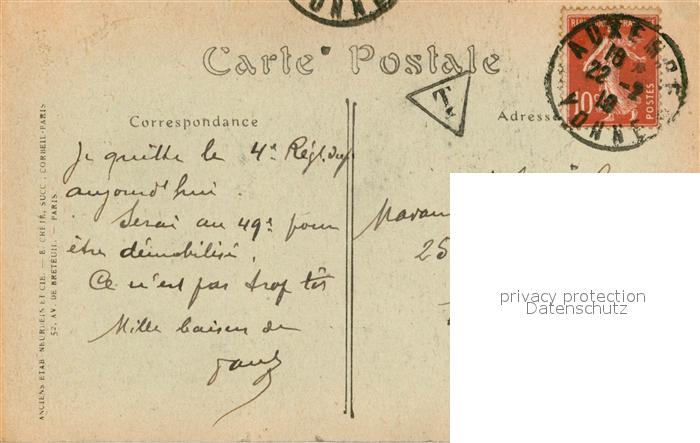 Carte Postale
T
AUXERRE
18
22 -2
19
YONNE
YONNE
10c
POSTES
Correspondance
Adresse
Je quitte le 4e Régt d'Inf
aujourd'hui.
Serai au 49e pour
être démobilisé.
Ce n'est pas trop tôt
Mille baisers de
Paul
25
privacy protection
Datenschutz
ANCIENS ETAB. NEURDEIN ET CIE. — E. CRÉTÉ, SUCC. CORBEIL-PARIS
52, AV. DE BRETEUIL. — PARIS